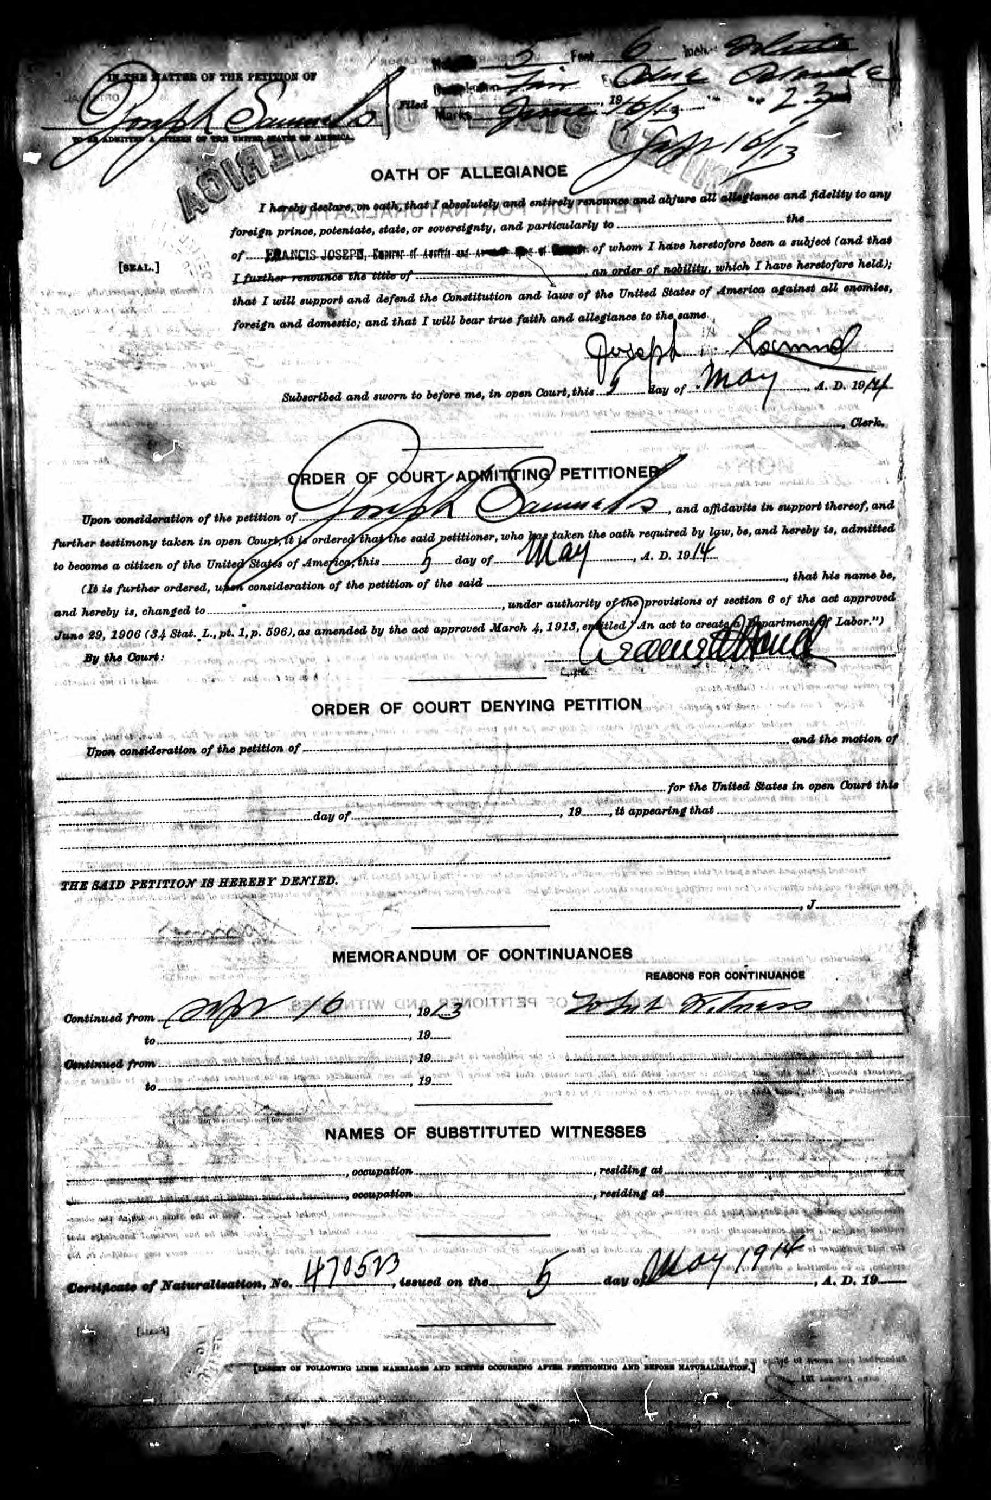 5 Feet 6 Inch. White
IN THE MATTER OF THE PETITION OF
Joseph Samuels
Filed 19
Marks
23
TO BE ADMITTED A CITIZEN OF THE UNITED STATES OF AMERICA.
16/13
OATH OF ALLEGIANCE
I hereby declare, on oath, that I absolutely and entirely renounce and abjure all allegiance and fidelity to any
foreign prince, potentate, state, or sovereignty, and particularly to the
of FRANCIS JOSEPH, Emperor of Austria and of of whom I have heretofore been a subject (and that
[SEAL.]
I further renounce the title of an order of nobility, which I have heretofore held);
that I will support and defend the Constitution and laws of the United States of America against all enemies,
foreign and domestic; and that I will bear true faith and allegiance to the same.
Joseph
Subscribed and sworn to before me, in open Court, this 5 day of May A. D. 1914
, Clerk.
ORDER OF COURT ADMITTING PETITIONER
Upon consideration of the petition of Joseph Samuels, and affidavits in support thereof, and
further testimony taken in open Court, it is ordered that the said petitioner, who has taken the oath required by law, be, and hereby is, admitted
to become a citizen of the United States of America, this 5 day of May, A. D. 1914
(It is further ordered, upon consideration of the petition of the said , that his name be,
and hereby is, changed to , under authority of the provisions of section 6 of the act approved
June 29, 1906 (34 Stat. L., pt. 1, p. 596), as amended by the act approved March 4, 1913, entitled "An act to create a Department of Labor.")
By the Court:
ORDER OF COURT DENYING PETITION
Upon consideration of the petition of and the motion of
for the United States in open Court this
day of , 19 , it appearing that
THE SAID PETITION IS HEREBY DENIED.
, J.
MEMORANDUM OF CONTINUANCES
REASONS FOR CONTINUANCE
Continued from 16, 1913 Witness
to , 19
Continued from , 19
to , 19
NAMES OF SUBSTITUTED WITNESSES
, occupation , residing at
, occupation , residing at
Certificate of Naturalization, No. 470523, issued on the 5 day of May 1914, A. D. 19
[INSERT ON FOLLOWING LINES MARRIAGES AND BIRTHS OCCURRING AFTER PETITIONING AND BEFORE NATURALIZATION.]